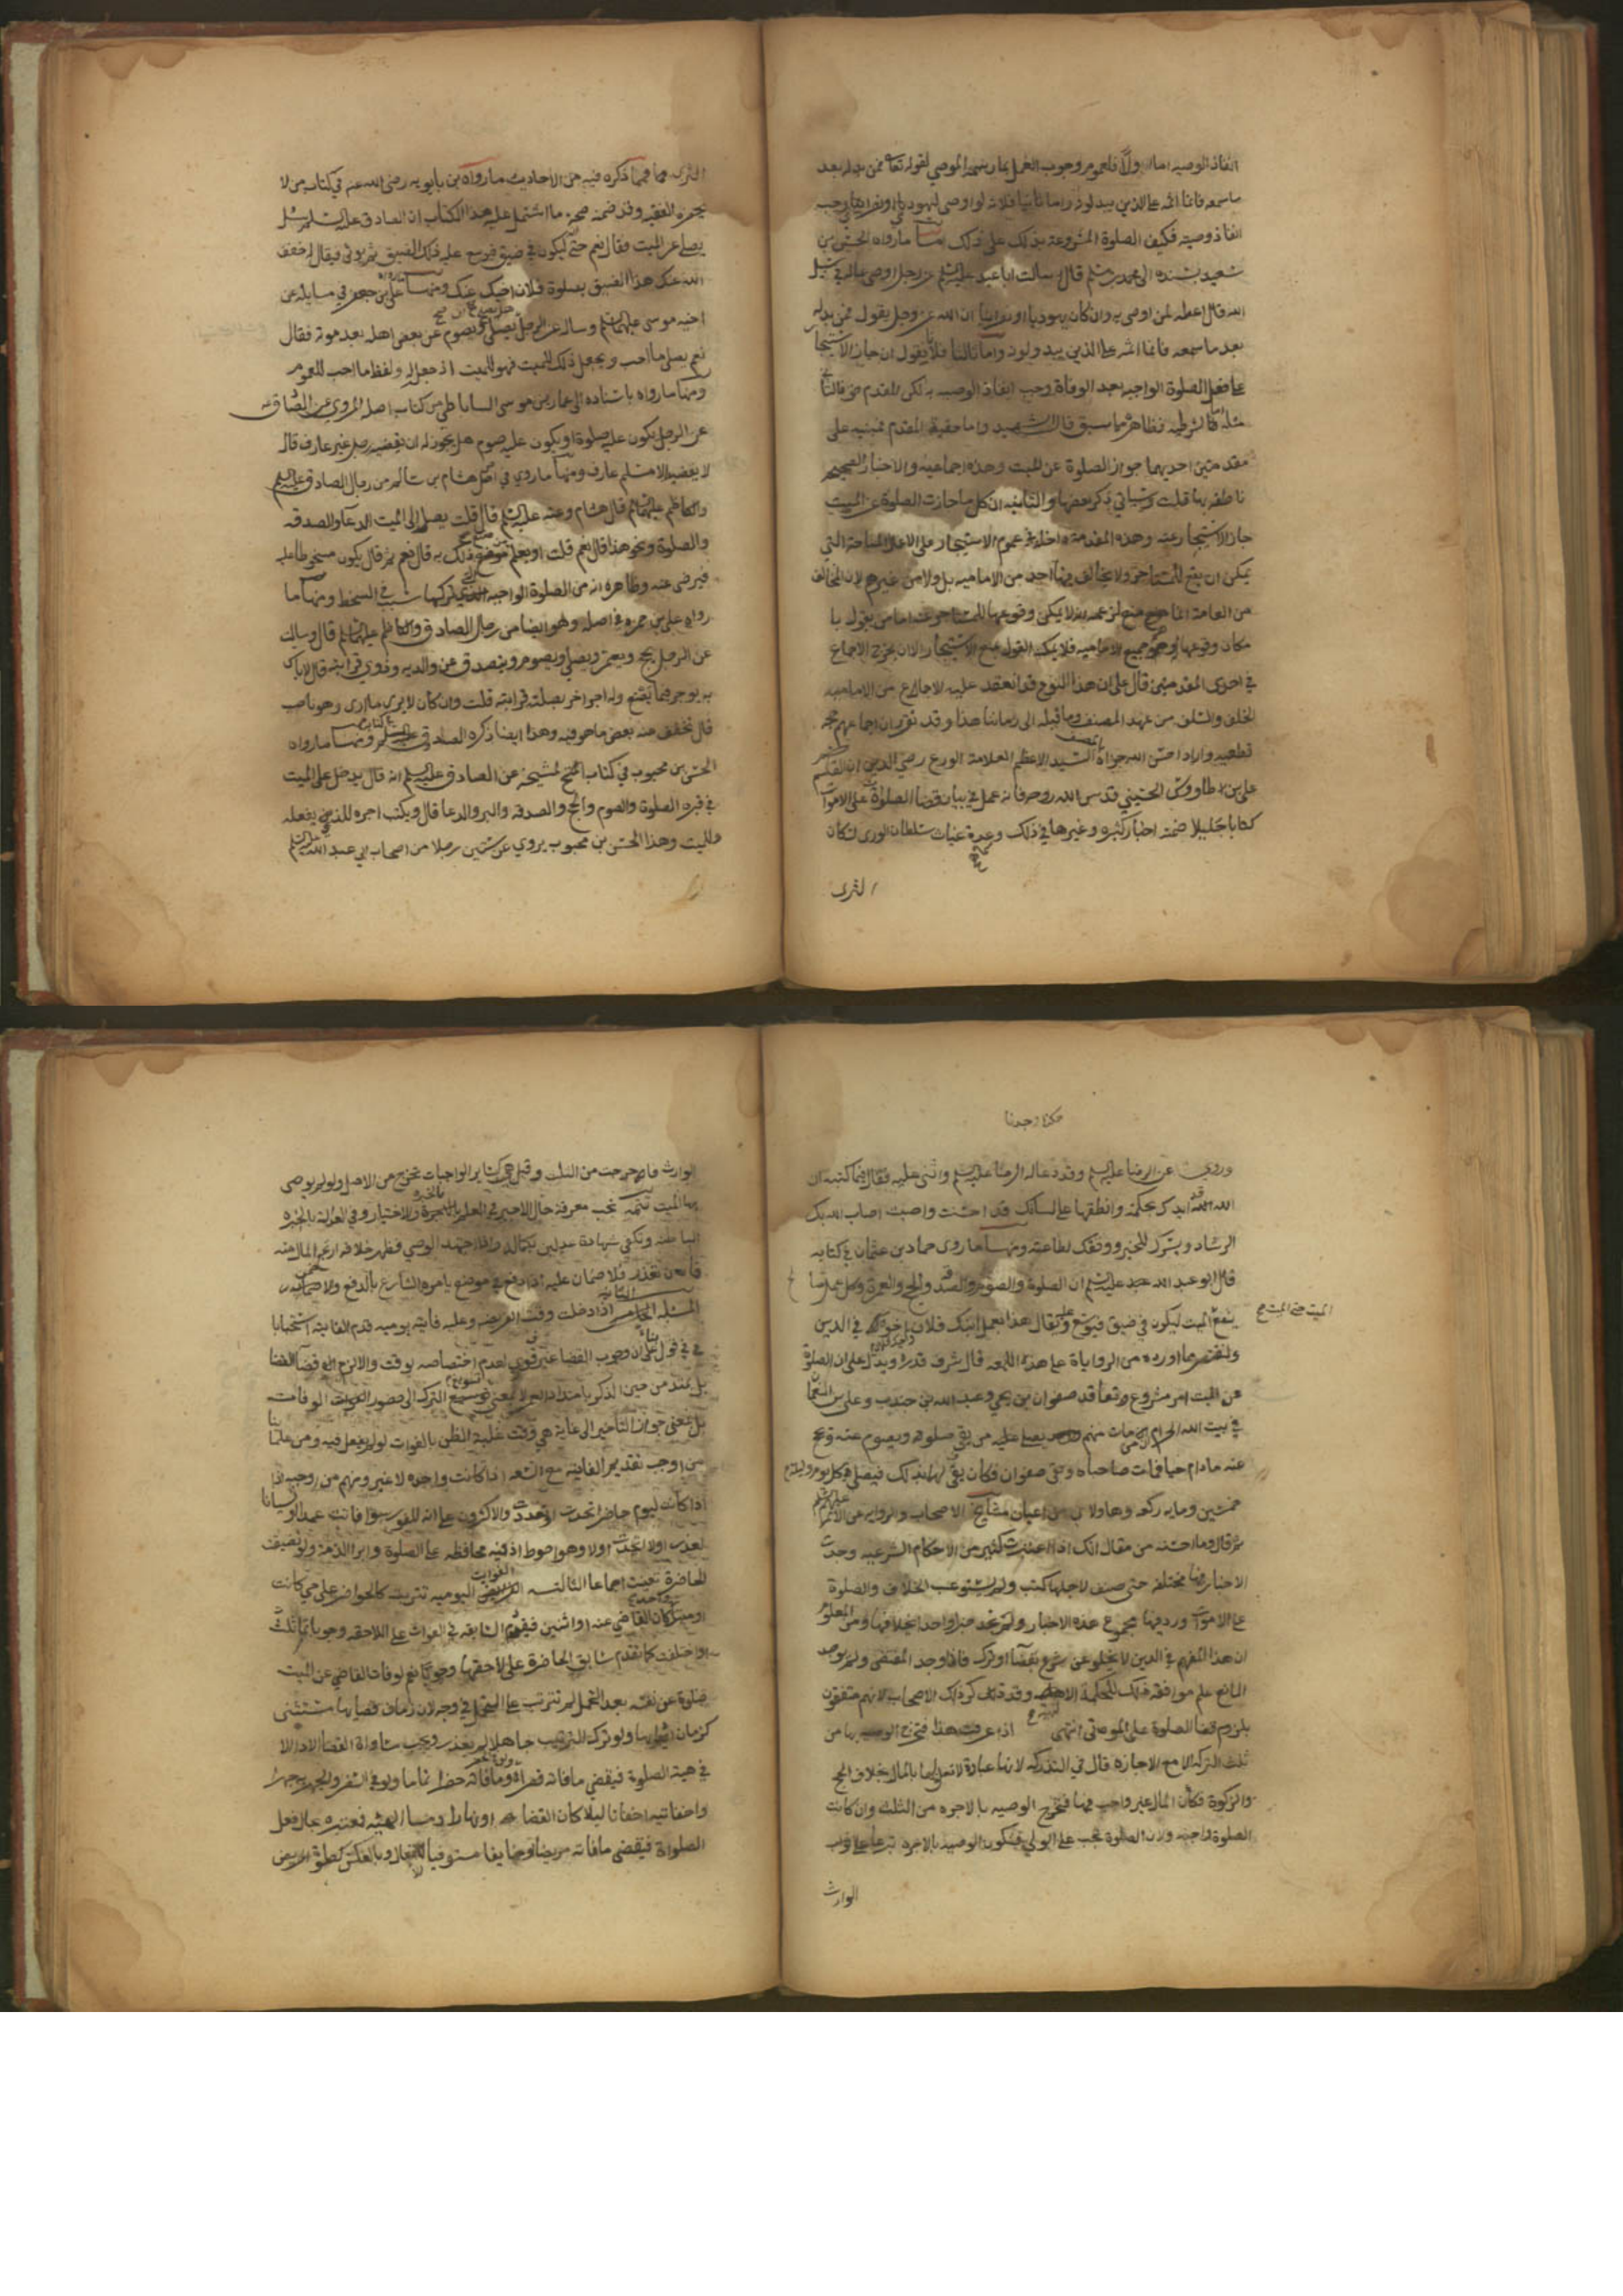 انفاذ الوصيه اما اولا فلعموم وجوب العمل بما رسمه الموصي لقوله تعا فمن بدله بعد
ما سمعه فانما اثمه على الذين يبدلونه واما ثانيا فلانه لو اوصى ليهودي او نصراني وجب
انفاذ وصيته فكيف الصلوة المشروعة يدلك على ذلك ما رواه الحسين بن
سعيد بسنده الى محمد بن مسلم قال سالت ابا عبد الله عليه السلم عن رجل اوصى بماله في سبيل
الله قال اعطه لمن اوصى به وان كان يهوديا او نصرانيا ان الله عز وجل يقول فمن بدله
بعد ما سمعه فانما اثمه على الذين يبدلونه واما ثالثا فلانا نقول ان جاز الاستيجار
على فعل الصلوة الواجبه بعد الوفاة وجب انفاذ الوصيه به لكن المقدم حق فالتالي
مثله اما الشرطيه فظاهر مما سبق قال الشهيد واما حقية المقدم فمبنيه على
مقدمتين احديهما جواز الصلوة عن الميت وهذه اجماعيه والاخبار الصحيحه
ناطقه بها قلت وسياتي ذكر بعضها والثانيه ان كل ما جازت الصلوة عن الميت
جاز الاستيجار عنه وهذه المقدمة داخله في عموم الاستيجار على الاعمال المباحة التي
يمكن ان يقع للمستاجر ولا يخالف فيها احد من الاماميه بل ولا من غيرهم لان المخالف
من العامة انما منع لزعمه انه لا يمكن وقوعها للمستاجر عنه اما من يقول با
مكان وقوعها وهم جميع الاماميه فلا يمكنه القول بمنع الاستيجار الا ان يخرق الاجماع
في احدى المقدمتين قال على ان هذا النوع قد انعقد عليه الاجماع من الاماميه
الخلف والسلف من عهد المصنف وما قبله الى زماننا هذا وقد تقرر ان اجماعهم حجه
قطعيه واراد احسن الله جزاه بالمصنف السيد الاعظم العلامة الورع رضي الدين ابا القسم
علي بن طاووس الحسيني قدس الله روحه فانه عمل في بيان قضا الصلوة عن الاموات
كتابا جليلا ضمنه اخبار كثيره وغيرها في ذلك وعمدة غياث سلطان الورى لسكان
الثرى
الثرى فمما ذكره فيه من الاحاديث ما رواه بن بابويه رضي الله عنه في كتاب من لا
يحضره الفقيه وقد ضمن صحة ما اشتمل عليه هذا الكتاب ان الصادق عليه السلم سئل
يصلى عن الميت فقال نعم حتى ليكون في ضيق فيوسع عليه ذلك الضيق ثم يوتى فيقال له خفف
الله عنك هذا الضيق بصلوة فلان اخيك عنك ومنها ما رواه علي بن جعفر في مسايله عن
اخيه موسى عليهما السلم وساله عن الرجل هل يصلح له ان يصلي او يصوم عن بعض اهله بعد موته فقال
نعم يصلي ما احب ويجعل ذلك للميت فهو للميت اذ جعله له ولفظ ما احب للعموم
ومنها ما رواه باسناده الى عمار بن موسى الساباطي من كتاب اصله المروي عن الصادق
عن الرجل يكون عليه صلوة او يكون عليه صوم هل يجوز له ان يقضيه رجل غير عارف قال
لا يقضيه الا مسلم عارف ومنها ما روي في اصل هشام بن سالم من رجال الصادق عليه السلم
والكاظم عليهما السلم قال هشام وعنه عليه السلم قال قلت يصل الى الميت الدعا والصدقه
والصلوة ونحو هذا قال نعم قلت او يعلم من صنع ذلك به قال نعم ثم قال يكون مسخوطا عليه
فيرضى عنه وظاهره انه من الصلوة الواجبه التي تركها سبب في السخط ومنها ما
رواه علي بن حمزه في اصله وهو ايضا من رجال الصادق والكاظم عليهما السلم قال وسالت
عن الرجل يحج ويعتمر ويصلي ويصوم ويتصدق عن والديه وذوي قرابته قال لا باس
به يوجر فيما يصنع وله اجر اخر بصلته قرابته قلت وان كان لا يرى ما ارى وهو ناصب
قال يخفف عنه بعض ما هو فيه وهذا ايضا ذكره ومنها ما رواه
الحسن بن محبوب في كتاب المشيخه عن الصادق عليه السلم انه قال يدخل على الميت
في قبره الصلوة والصوم والحج والصدقه والبر والدعا قال ويكتب اجره للذي يفعله
وللميت وهذا الحسن بن محبوب يروي عن ستين رجلا من اصحاب ابي عبد الله عليه السلم
هكذا وجدنا
وروى عن الرضا عليه السلم وقد دعا له الرضا عليه السلم واثنى عليه فقال فيما كتبه ان
الله قد ايدك بحكمة وانطقها على لسانك قد احسنت واصبت اصاب الله بك
الرشاد ويسرك للخير ووفقك لطاعته ومنها ما روى حماد بن عثمان في كتابه
قال ابو عبد الله عليه السلم ان الصلوة والصوم والصدقه والحج والعمرة وكل عمل صا
ينفع الميت حتى ان الميت ليكون في ضيق فيوسع عليه ويقال هذا بعمل ابنك فلان اخوك في الدين
ولنقتصر مما اورده من الروايات على هذه اللمعه قال شرف قدره ويدل على ان الصلوة
عن الميت امر مشروع تعاقد صفوان بن يحيى وعبد الله بن جندب وعلي بن النعمان
في بيت الله الحرام ان من مات منهم يصلي عليه من بقي صلوته ويصوم عنه ويحج
عنه ما دام حيا فمات صاحباه وبقي صفوان فكان يفي لهما بذلك فيصلي كل يوم وليله
خمسين ومايه ركعه وهاولاء من اعيان مشايخ الاصحاب والرواية عن الائمة عليهم السلم
ثم قال وما احسنه من مقال انك اذا اعتبرت كثير من الاحكام الشرعيه وجدت
الاخبار فيها مختلفه حتى صنف لاجلها كتب ولم يستوعب الخلاف والصلوة
عن الاموات ورد فيها مجموع هذه الاخبار ولم نجد خبرا واحدا بخلافها ومن المعلوم
ان هذا المهم في الدين لا يخلو عن شرع بقضا او ترك فاذا وجد المقتضى ولم يوجد
المانع علم موافقة ذلك للحكمة الالهيه وقد ذكر ذلك الاصحاب لانهم متفقون
بلزوم قضا الصلوة على الموصى انتهى اذا عرفت هذا فتخرج الوصيه بها من
ثلث التركه الا مع الاجازه قال في التذكره لانها عبادة لا تعلق لها بالمال بخلاف الحج
والزكوة فكان المال غير واجب فيها فتخرج الوصيه بالاجره من الثلث وان كانت
الصلوة واجبه ولان الصلوة تجب على الولي فتكون الوصيه بالاجره تبرعا على
الوارث
الوارث فاخرجت من الثلث وقيل هي كساير الواجبات تخرج من الاصل ولو لم يوصى
بها الميت تتمه تجب معرفة حال الاجير في العلم بالخبره والاختيار وفي العدالة بالخبره
الباطنه وتكفي شهادة عدلين بكماله واذا اجتهد الوصي فظهر خلافه ارتجع المال منه
فان تعذر فلا ضمان عليه لانه دفع في موضع يامره الشارع بالدفع ولا ضمان
المسله الثانيه اذا دخلت وقت الفريضه وعليه فايته يوميه قدم الفايته استحبابا
في قول بناء على ان وجوب القضا غير فوري لعدم اختصاصه بوقت والا لزم
بل يمتد من حين الذكر بامتداد العمر لا بمعنى توسيع الترك الى حضور الوفات
بل بمعنى جواز التاخير الى غاية هي وقت غلبة الظن بالفوات لو لم يفعل فيه ومن علمائنا
من اوجب تقديم الفايته مع السعه اذا كانت واحده لا غير ومنهم من اوجبه
اذا كانت ليوم حاضر اتحدت او تعددت والاكثرون على انه للفور سوا فاتت عمدا او نسيانا
لعذر اولا اتحدت اولا وهو احوط اذ فيه محافظه على الصلوة وابرا الذمة ولو تضيقت
الحاضرة تعينت اجماعا الثالثه الفوايت اليوميه تترتب كالحواضر على حي كانت
او ميت كان القاضي عنه واحدا او اثنين فيقدم السابقه في الفوات على اللاحقه وجوبا تماثلت
او اختلفت كما تقدم سابق الحاضرة على لاحقها وجوبا نعم لو فات القاضي عن الميت
صلوة عن نفسه بعد التحمل لم تترتب على المتحمل في وجه لان زمان قضايها مستثنى
كزمان ادائها ولو ترك الترتيب جاهلا لم يعذر ويجب مساواة القضا الادا
في هيئة الصلوة فيقضي ما فاته قصرا وما فاته حضرا تماما ولو في السفر والجهريه جهرا
واخفاتيه اخفاتا ليلا كان القضا او نهارا
الصلواة فيقضي ما فاته مريضا او خايفا مستوفيا للافعال وبالعكس